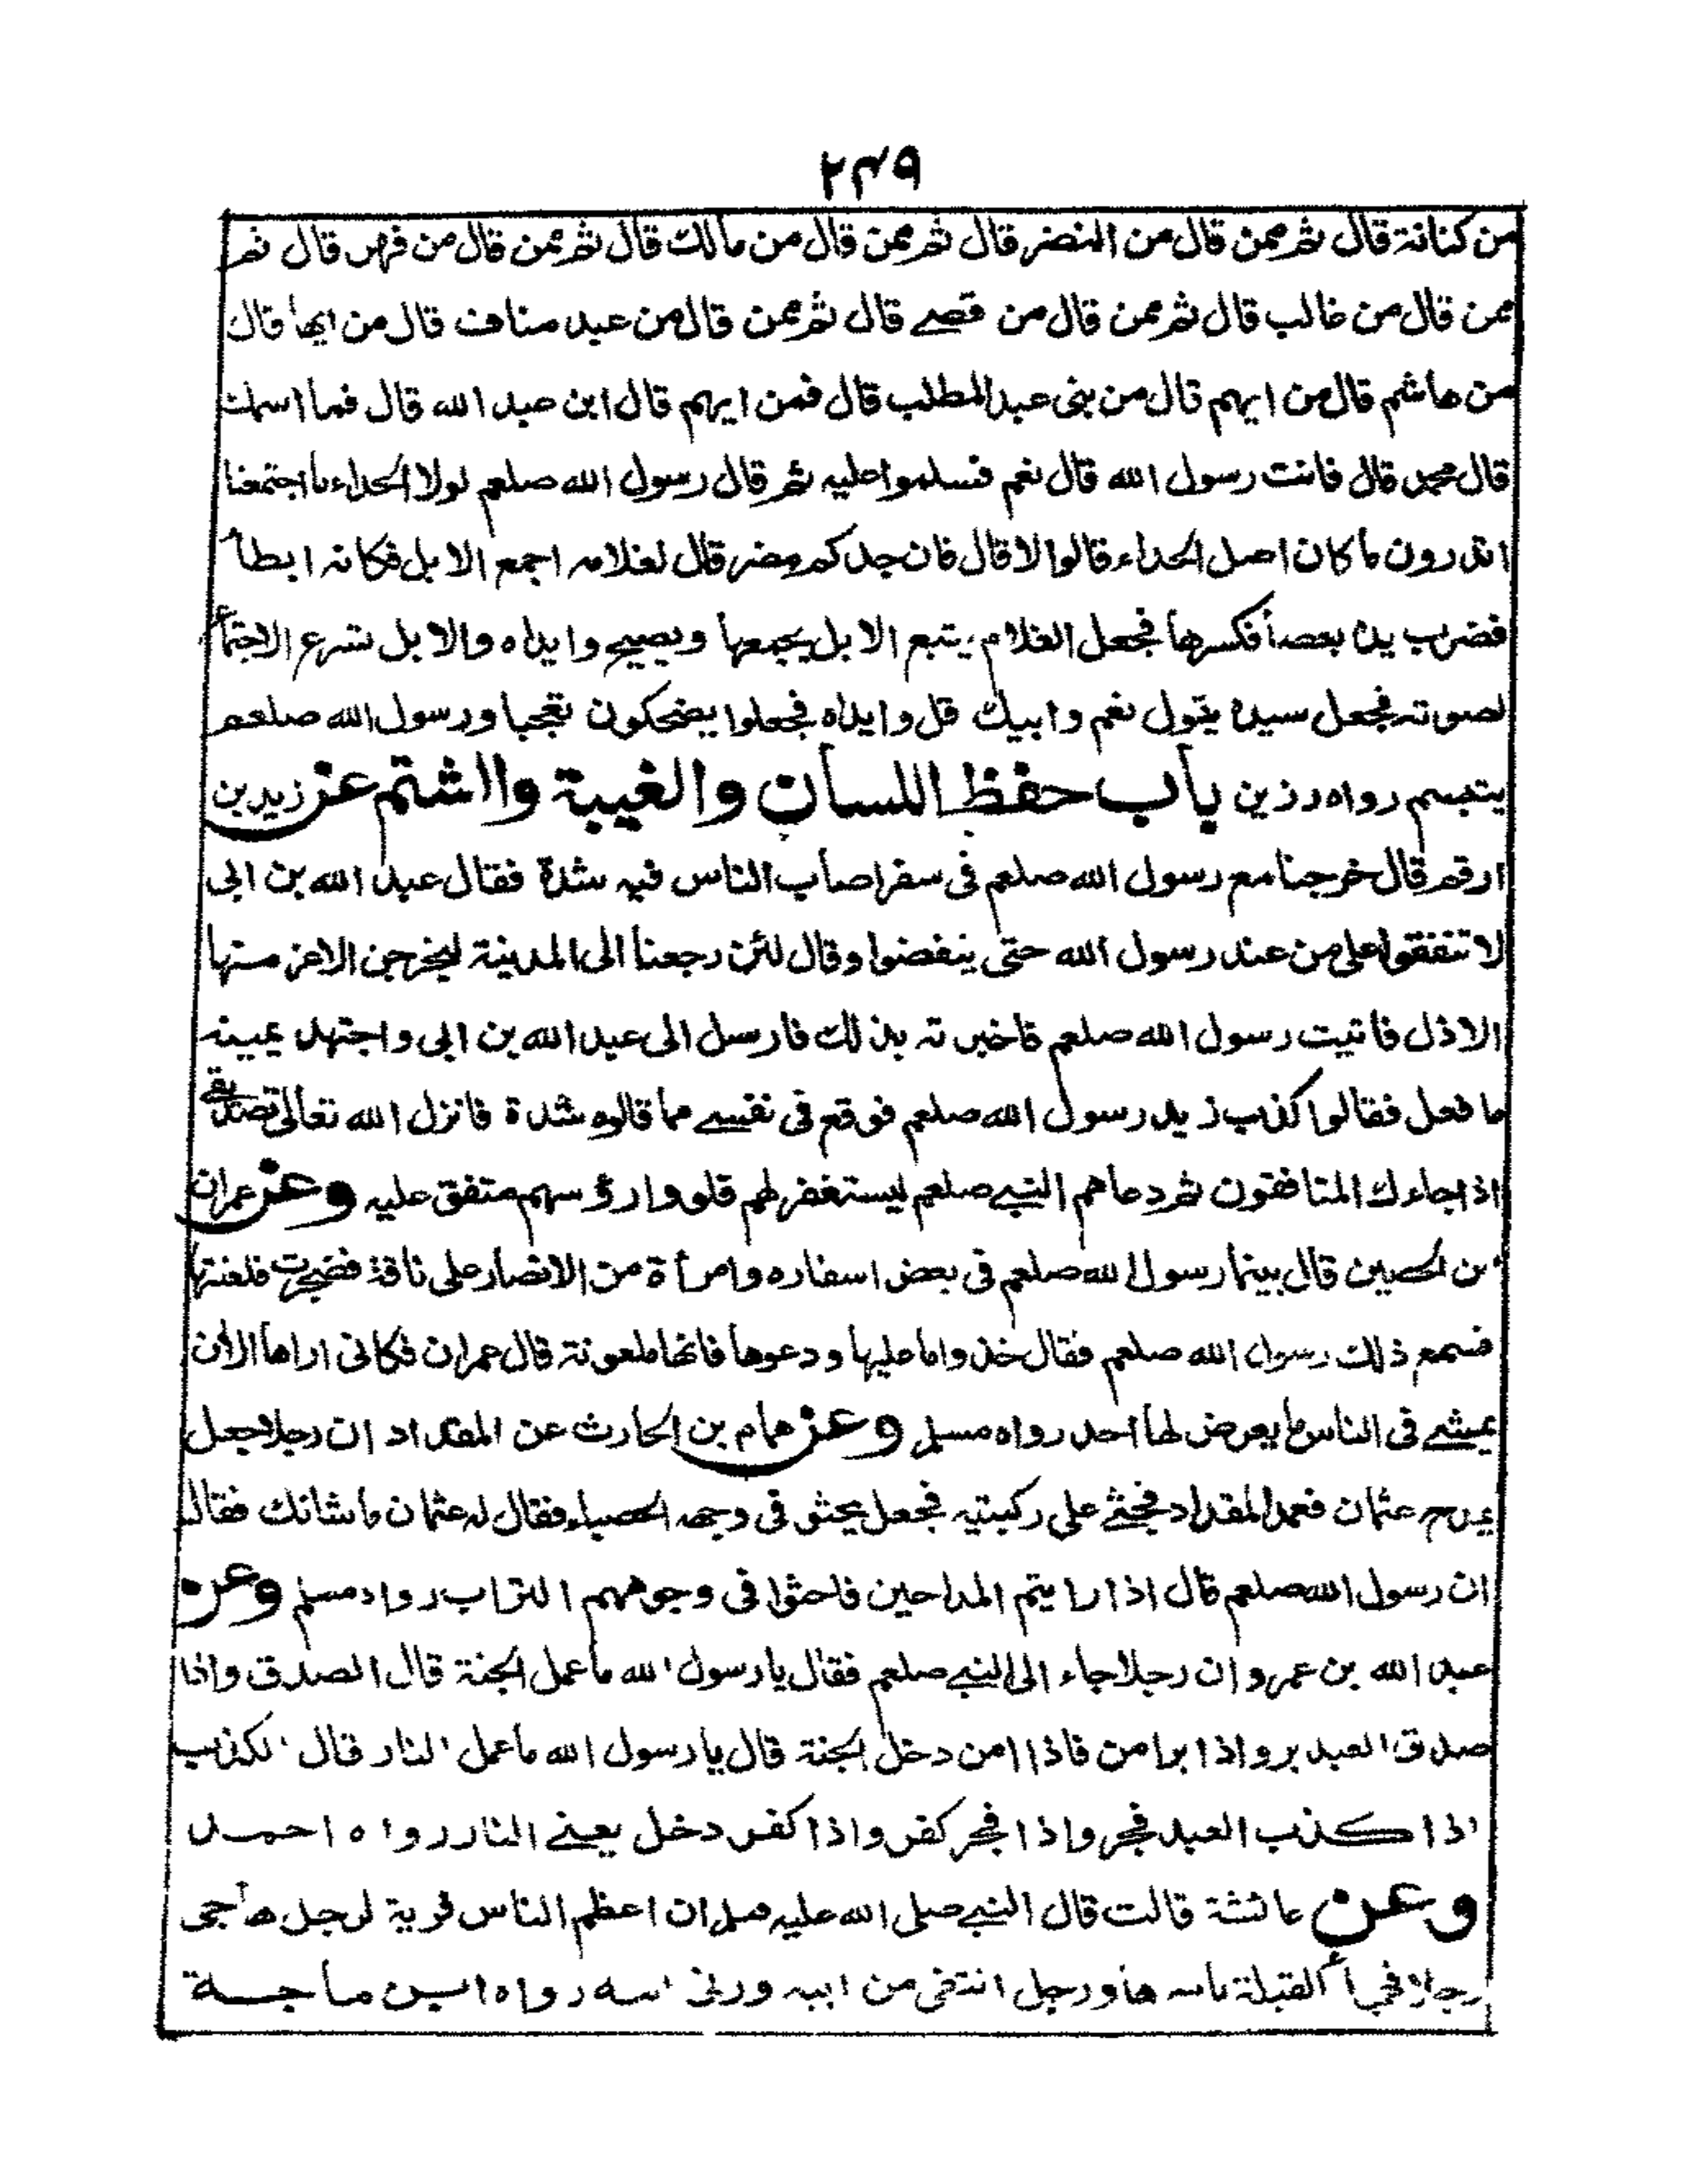 ۲۴۹
من كنانة قال ثم ممن قال من النضر قال ثم ممن قال من مالك قال ثم ممن قال من فهر قال ثم
ممن قال من غالب قال ثم ممن قال من قصے قال ثم ممن قال من عبد مناف قال من ايها قال
من هاشم قال من ايهم قال من بنى عبد المطلب قال فمن ايهم قال ابن عبد الله قال فما اسمك
قال محمد قال فانت رسول الله قال نعم فسلموا عليه ثم قال رسول الله صلعم لولا الحداء ما اجتمعنا
اتدرون ما كان اصل الحداء قالوا لا قال فان جدكم مضر قال لغلامه اجمع الابل فكانه ابطأ
فضرب يده بعصا فكسرها فجعل الغلام يتبع الابل يجمعها ويصيح وايداه والابل تسرع الاجتماع
لصوته فجعل سيده يقول نعم وابيك قل وايداه فجعلوا يضحكون تعجبا ورسول الله صلعم
يتبسم رواه رزين باب حفظ اللسان والغيبة والشتم عن زيد بن
ارقم قال خرجنا مع رسول الله صلعم فى سفر اصاب الناس فيه شدة فقال عبد الله بن ابى
لا تنفقوا على من عند رسول الله حتى ينفضوا وقال لئن رجعنا الى المدينة ليخرجن الاعز منها
الاذل فاتيت رسول الله صلعم فاخبرته بذلك فارسل الى عبد الله بن ابى واجتهد يمينه
ما فعل فقالوا كذب زيد رسول الله صلعم فوقع فى نفسے مما قالوه شدة فانزل الله تعالى تصديقے
اذا جاءك المنافقون ثم دعاهم النبے صلعم ليستغفر لهم فلووا رؤسهم متفق عليه وعن عمران
بن الحصين قال بينما رسول الله صلعم فى بعض اسفاره وامرأة من الانصار على ناقة فضجرت فلعنتها
فسمع ذلك رسول الله صلعم فقال خذوا ما عليها ودعوها فانها ملعونة قال عمران فكانى اراها الأن
يمشے فى الناس ما يعرض لها احد رواه مسلم وعن همام بن الحارث عن المقداد ان رجلا جعل
يمدح عثمان فعمد المقداد فجثے على ركبتيه فجعل يحثو فى وجهه الحصباء فقال له عثمان ما شانك فقال
ان رسول الله صلعم قال اذا رايتم المداحين فاحثوا فى وجوههم التراب رواه مسلم وعن
عبد الله بن عمرو ان رجلا جاء الى النبے صلعم فقال يا رسول الله ما عمل الجنة قال الصدق واذا
صدق العبد بر واذا بر امن فاذا امن دخل الجنة قال يا رسول الله ما عمل النار قال الكذب
اذا كذب العبد فجر واذا فجر كفر واذا كفر دخل يعنے النار رواه احمد
وعن عائشة قالت قال النبے صلى الله عليه وسلم ان اعظم الناس فرية لرجل هاجى
رجلا فهجا القبيلة باسرها ورجل انتفى من ابيه وزنى امه رواه ابن ماجة